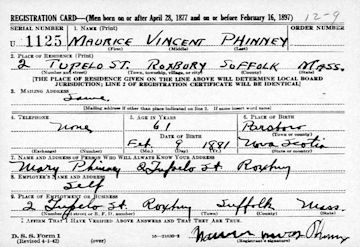 REGISTRATION CARD—(Men born on or after April 28, 1877 and on or before February 16, 1897) 12-9
SERIAL NUMBER 1. NAME (Print) ORDER NUMBER
U 1125 MAURICE VINCENT PHINNEY
(First) (Middle) (Last)
2. PLACE OF RESIDENCE (Print)
2 TUPELO ST. ROXBURY SUFFOLK MASS.
(Number and street) (Town, township, village, or city) (County) (State)
[THE PLACE OF RESIDENCE GIVEN ON THE LINE ABOVE WILL DETERMINE LOCAL BOARD
JURISDICTION; LINE 2 OF REGISTRATION CERTIFICATE WILL BE IDENTICAL]
3. MAILING ADDRESS
Same
[Mailing address if other than place indicated on line 2. If same insert word same]
4. TELEPHONE 5. AGE IN YEARS 6. PLACE OF BIRTH
None 61 Parsboro
DATE OF BIRTH (Town or county)
9 1881 Nova Scotia
(Exchange) (Number) (Mo.) (Day) (Yr.) (State or country)
7. NAME AND ADDRESS OF PERSON WHO WILL ALWAYS KNOW YOUR ADDRESS
Mary Phinney 2 Tupelo St. Roxbury
8. EMPLOYER'S NAME AND ADDRESS
Self
9. PLACE OF EMPLOYMENT OR BUSINESS
2 Tupelo St. Roxbury Suffolk Mass.
(Number and street or R. F. D. number) (Town) (County) (State)
I AFFIRM THAT I HAVE VERIFIED ABOVE ANSWERS AND THAT THEY ARE TRUE.
D. S. S. Form 1
(Revised 4-1-42) (over) (Registrant's signature)